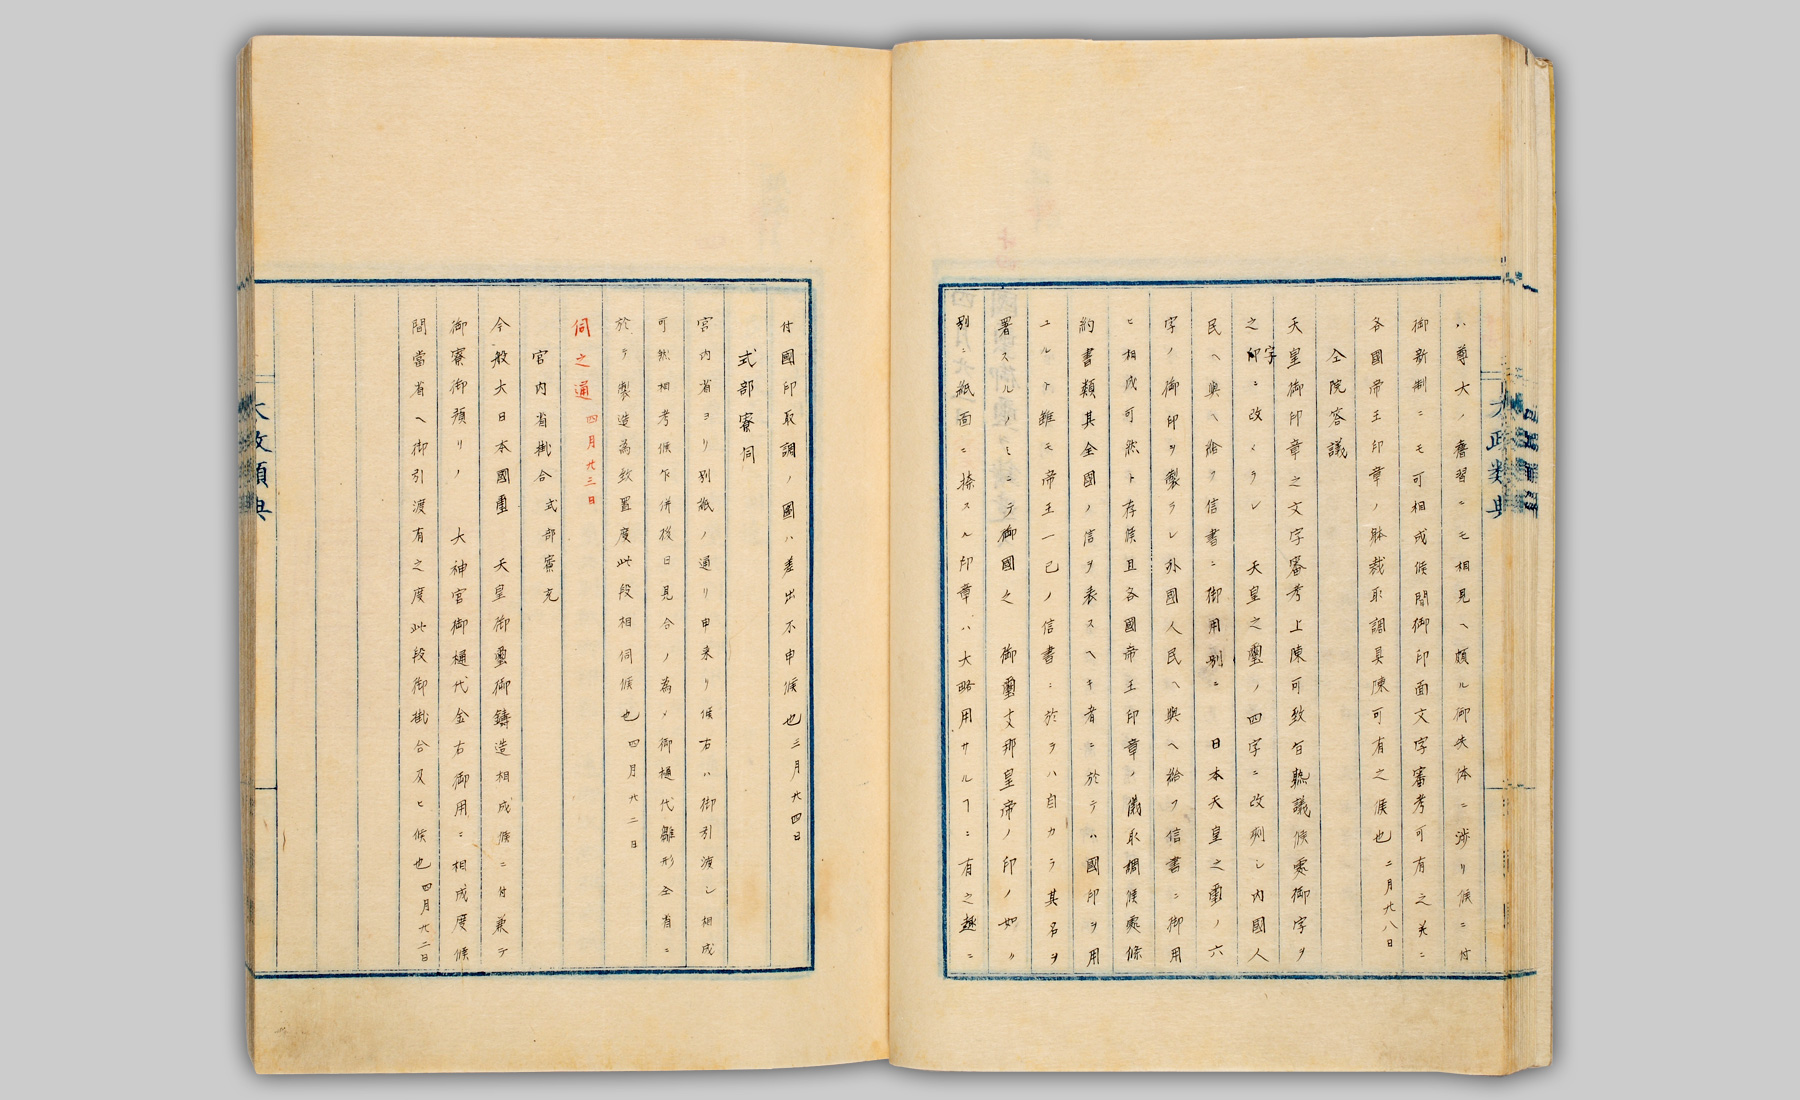 ハ尊大ノ舊習ニモ相見ヘ頗ル御失体ニ渉リ候ニ付
御新制ニモ可相成候間御印面文字審考可有之尤ニ
各國帝王印章ノ躰裁取調具陳可有之候也 二月廿八日
仝院答議
天皇御印章之文字審考上陳可致旨熟議候處御字ヲ
之字ニ改メラレ 天皇之璽ノ四字ニ改刻シ内國人
民ヘ與ヘ給フ信書ニ御用別ニ 日本天皇之璽ノ六
字ノ御印ヲ製ラレ外國人民ヘ與ヘ給フ信書ニ御用
ヒ相成可然ト存候且各國帝王印章ノ儀取調候處條
約書類其全國ノ信ヲ表スヘキ者ニ於テハ國印ヲ用
ユルト雖モ帝王一己ノ信書ニ於テハ自カラ其名ヲ
署スルノミニテ御國之 御璽支那皇帝ノ印ノ如ク
別ニ紙面ニ捺スル印章ハ大略用サルヿニ有之趣ニ
付國印取調ノ圖ハ差出不申候也 三月廿四日
式部寮伺
宮内省ヨリ別紙ノ通リ申来リ候右ハ御引渡シ相成
可然相考候乍併後日見合ノ為メ御樋代雛形全省ニ
於テ製造為致置度此段相伺候也 四月廿二日
伺之通 四月廿三日
宮内省掛合 式部寮充
今般大日本國璽 天皇御璽御鑄造相成候ニ付兼テ
御寮御預リノ 大神宮御樋代金右御用ニ相成度候
間當省ヘ御引渡有之度此段御掛合及ヒ候也 四月廿二日
太政類典